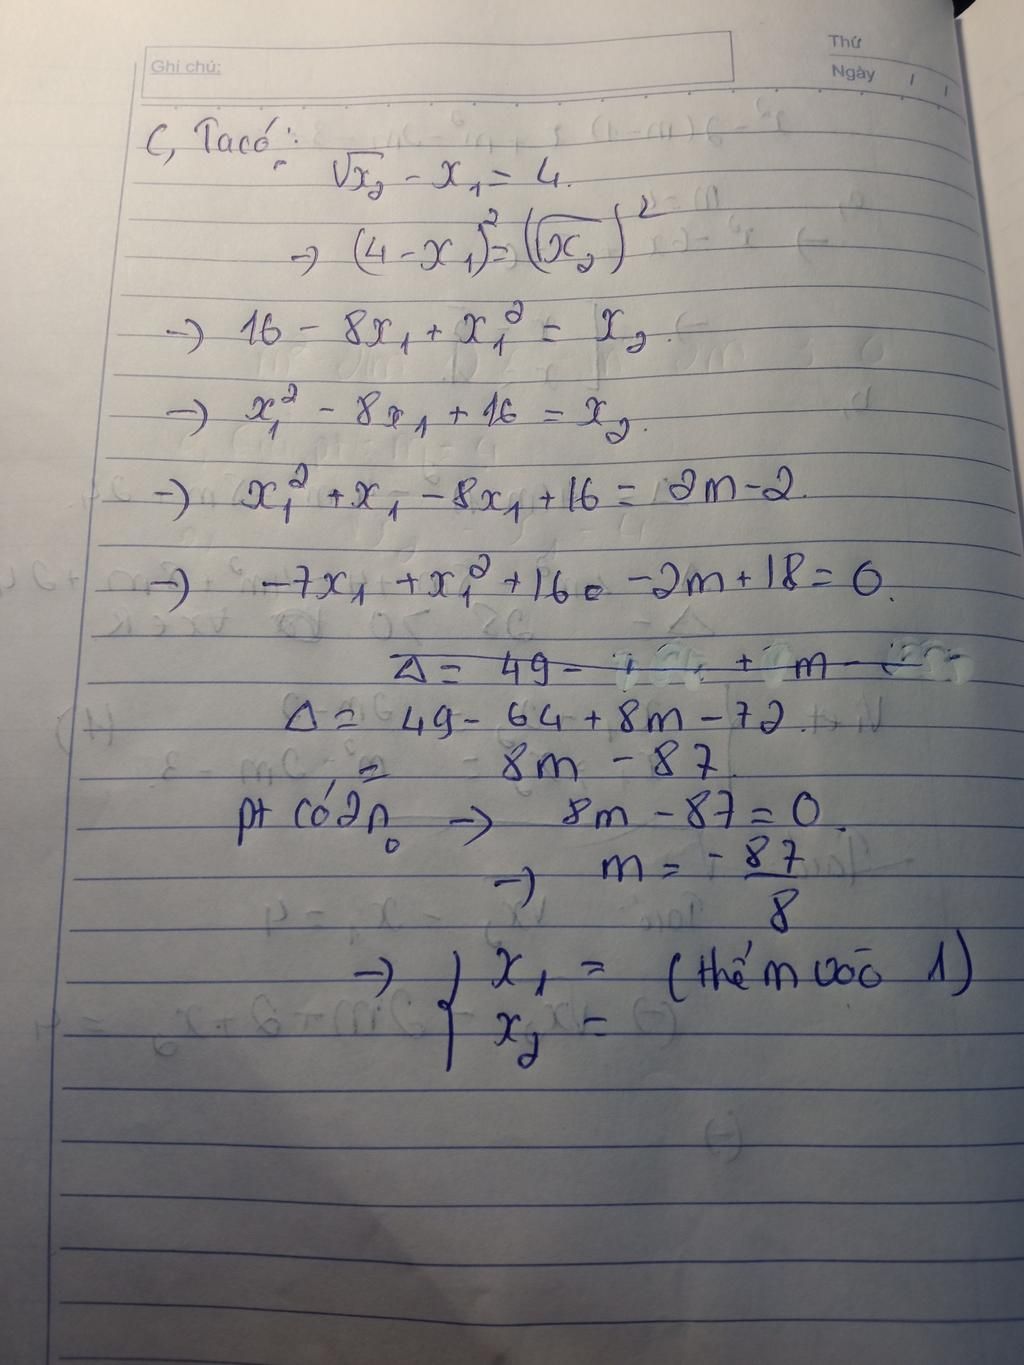 Thứ
Ghi chú:
Ngày / /
C, Ta có:
√x₂ - x₁ = 4.
→ (4 - x₁)² = (√x₂)²
→ 16 - 8x₁ + x₁² = x₂.
→ x₁² - 8x₁ + 16 = x₂.
→ x₁² + x₁ - 8x₁ + 16 = 2m - 2.
→ -7x₁ + x₁² + 16 - 2m + 18 = 0.
Δ = 49 - + m -
Δ = 49 - 64 + 8m - 72.
= 8m - 87.
pt có 2n₀ → 8m - 87 = 0.
→ m = -87/8
→ { x₁ = (thế m vào 1)
x₂ =